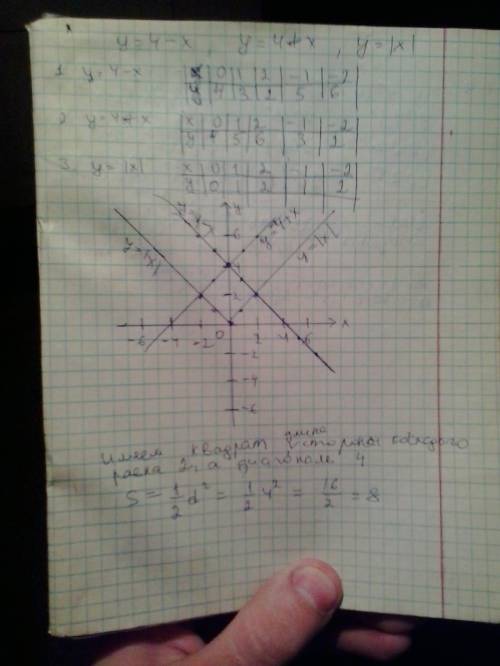 y=4-x , y=4+x , y=|x|
1. y=4-x | x | 0 | 1 | 2 | -1 | -2 |
| y | 4 | 3 | 2 | 5 | 6 |
2. y=4+x | x | 0 | 1 | 2 | -1 | -2 |
| y | 4 | 5 | 6 | 3 | 2 |
3. y=|x| | x | 0 | 1 | 2 | -1 | -2 |
| y | 0 | 1 | 2 | 1 | 2 |
y
6
y=4+x
y=|x|
y=|x|
4
2
x
-6 -4 -2 0 2 4 6
-2
-4
-6
Имеем квадрат длина стороны которого
равна а диагонале 4
S = 1/2 d² = 1/2 4² = 16/2 = 8